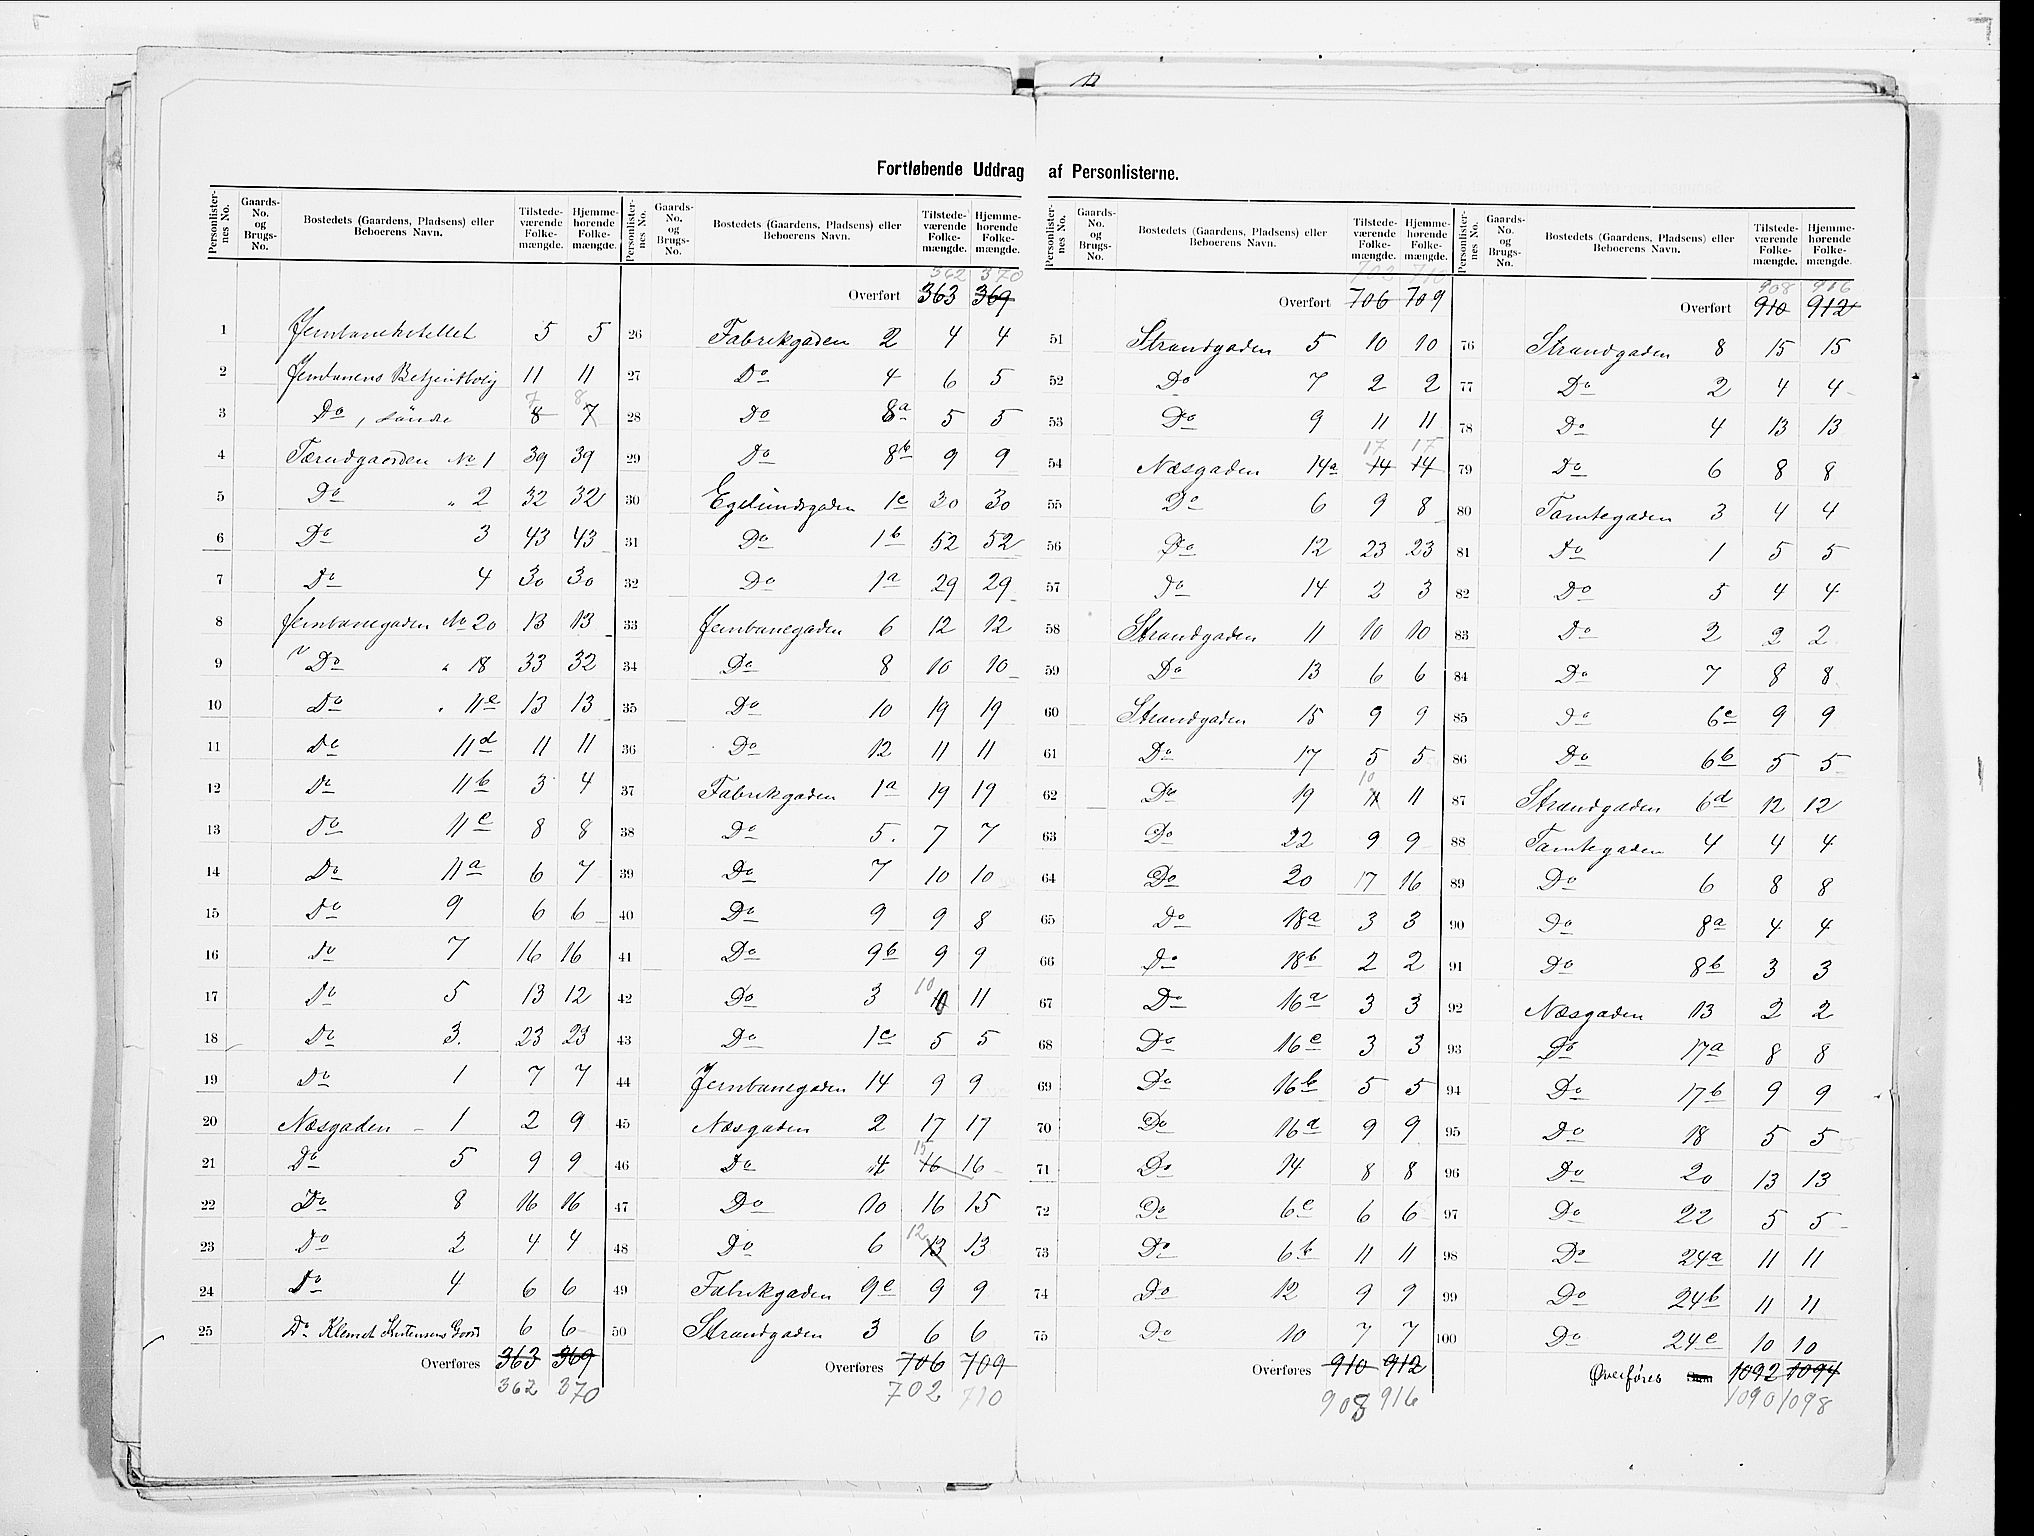 Fortløbende Uddrag af Personlisterne.
Personlisternes No. Gaards-No. og Brugs-No. Bostedets (Gaardens, Pladsens) eller Beboerens Navn. Tilstedeværende Folkemængde. Hjemmehørende Folkemængde.
1 Jernbanehotellet 5 5
2 Jernbanens Betjentbolig 11 11
3 Do, søndre 8 7 7 8
4 Tærudgaarden No 1 39 39
5 Do " 2 32 32
6 Do 3 43 43
7 Do 4 30 30
8 Jernbanegaden No 20 13 13
9 Do " 18 33 32
10 Do " 11e 13 13
11 Do 11d 11 11
12 Do 11b 3 4
13 Do 11c 8 8
14 Do 11a 6 7
15 Do 9 6 6
16 Do 7 16 16
17 Do 5 13 12
18 Do 3. 23 23
19 Do 1 7 7
20 Næsgaden – 1 2 9
21 Do 5 9 9
22 Do 8 16 16
23 Do 2 4 4
24 Do 4 6 6
25 Do Klemet Kristensens Gaard 6 6
Overføres 363 369
362 370
Personlisternes No. Gaards-No. og Brugs-No. Bostedets (Gaardens, Pladsens) eller Beboerens Navn. Tilstedeværende Folkemængde. Hjemmehørende Folkemængde.
362 370
Overført 363 369
26 Fabrikgaden 2 4 4
27 Do 4 6 5
28 Do 8a 5 5
29 Do 8b 9 9
30 Egelundsgaden 1c 30 30
31 Do 1b 52 52
32 Do 1a 29 29
33 Jernbanegaden 6 12 12
34 Do 8 10 10
35 Do 10 19 19
36 Do 12 11 11
37 Fabrikgaden 1a 19 19
38 Do 5. 7 7
39 Do 7 10 10
40 Do 9 9 8
41 Do 9b 9 9
42 Do 3 10 11
43 Do 1c 5 5
44 Jernbanegaden 14 9 9
45 Næsgaden 2 17 17
46 Do 4 15 16 16
47 Do 10 16 15
48 Do 6 12 13 13
49 Fabrikgaden 9c 9 9
50 Strandgaden 3 6 6
Overføres 706 709
702 710
Personlisternes No. Gaards-No. og Brugs-No. Bostedets (Gaardens, Pladsens) eller Beboerens Navn. Tilstedeværende Folkemængde. Hjemmehørende Folkemængde.
702 710
Overført 706 709
51 Strandgaden 5 10 10
52 Do 7 2 2
53 Do 9 11 11
54 Næsgaden 14a 17 14 17 14
55 Do 6 9 8
56 Do 12 23 23
57 Do 14 2 3
58 Strandgaden 11 10 10
59 Do 13 6 6
60 Strandgaden 15 9 9
61 Do 17 5 5
62 Do 19 10 11 11
63 Do 22 9 9
64 Do 20 17 16
65 Do 18a 3 3
66 Do 18b 2 2
67 Do 16a 3 3
68 Do 16c 3 3
69 Do 16b 5 5
70 Do 16d 9 9
71 Do 14 8 8
72 Do 6c 6 6
73 Do 6b 11 11
74 Do 12 9 9
75 Do 10 7 7
Overføres 910 912
908 916
Personlisternes No. Gaards-No. og Brugs-No. Bostedets (Gaardens, Pladsens) eller Beboerens Navn. Tilstedeværende Folkemængde. Hjemmehørende Folkemængde.
908 916
Overført 910 912
76 Strandgaden 8 15 15
77 Do 2 4 4
78 Do 4 13 13
79 Do 6 8 8
80 Tomtegaden 3 4 4
81 Do 1 5 5
82 Do 5 4 4
83 Do 2 2 2
84 Do 7 8 8
85 Do 6c 9 9
86 Do 6b 5 5
87 Strandgaden 6d 12 12
88 Tomtegaden 4 4 4
89 Do 6 8 8
90 Do 8a 4 4
91 Do 8b 3 3
92 Næsgaden 13 2 2
93 Do 17a 8 8
94 Do 17b 9 9
95 Do 18 5 5
96 Do 20 13 13
97 Do 22 5 5
98 Do 24a 11 11
99 Do 24b 11 11
100 Do 24c 10 10
Overføres 1092 1094
1090 1098